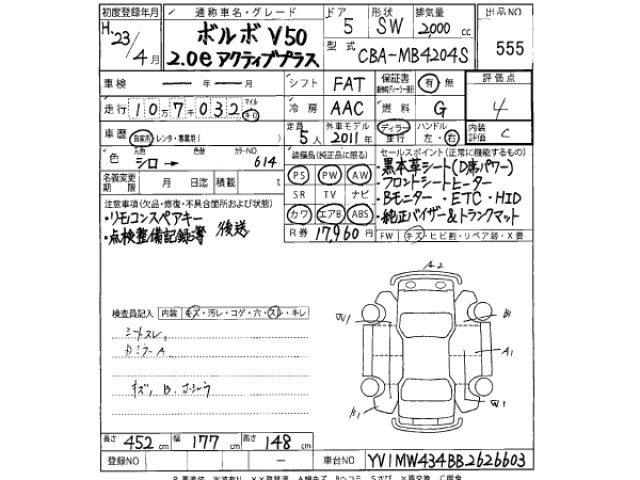 初度登録年月 通称車名・グレード ドア 形状 排気量 出品NO.
H.23/4月 ボルボ V50 5 SW 2,000 cc 555
2.0e アクティブプラス 型式 CBA-MB4204S
車検 年 月 シフト FAT 保証書 有・無 評価点
走行 10万7032 マイル キロ 冷房 AAC 燃料 G 4
車歴 自家用・レンタ・事業用( ) 定員 5人 外車モデル 2011年 ディーラー・並行 ハンドル 左・右 内装評価 C
色 元色 シロ→ 色替 カラーNO 614 装備品(純正品に限る) セールスポイント(正常に機能するもの)
名義変更期限 月 日迄 積載 t PS PW AW ・黒本革シート(D席パワー)
SR TV ナビ ・フロントシートヒーター
注意事項(欠品・修復・不具合箇所および状態) カワ エアB ABS ・Bモニター・ETC・HID
・リモコンスペアキー R券 17,960円 ・純正バイザー&トランクマット
・点検整備記録簿 後送 FW キズ・ヒビ割・リペア跡・X要
A2
検査員記入 内装 キズ・汚レ・コゲ・穴・スレ・キレ
W1 B1
シートスレ,
カミラーA A1
キズ, B.
W1
長さ 452 cm 幅 177 cm 高さ 148 cm
登録NO － 車台NO YV1MW434BB2626603